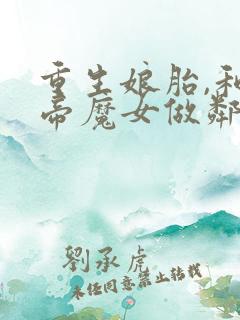 重生娘胎,和
帝魔女做鄰
劉承虎
未任同意禁止轉載